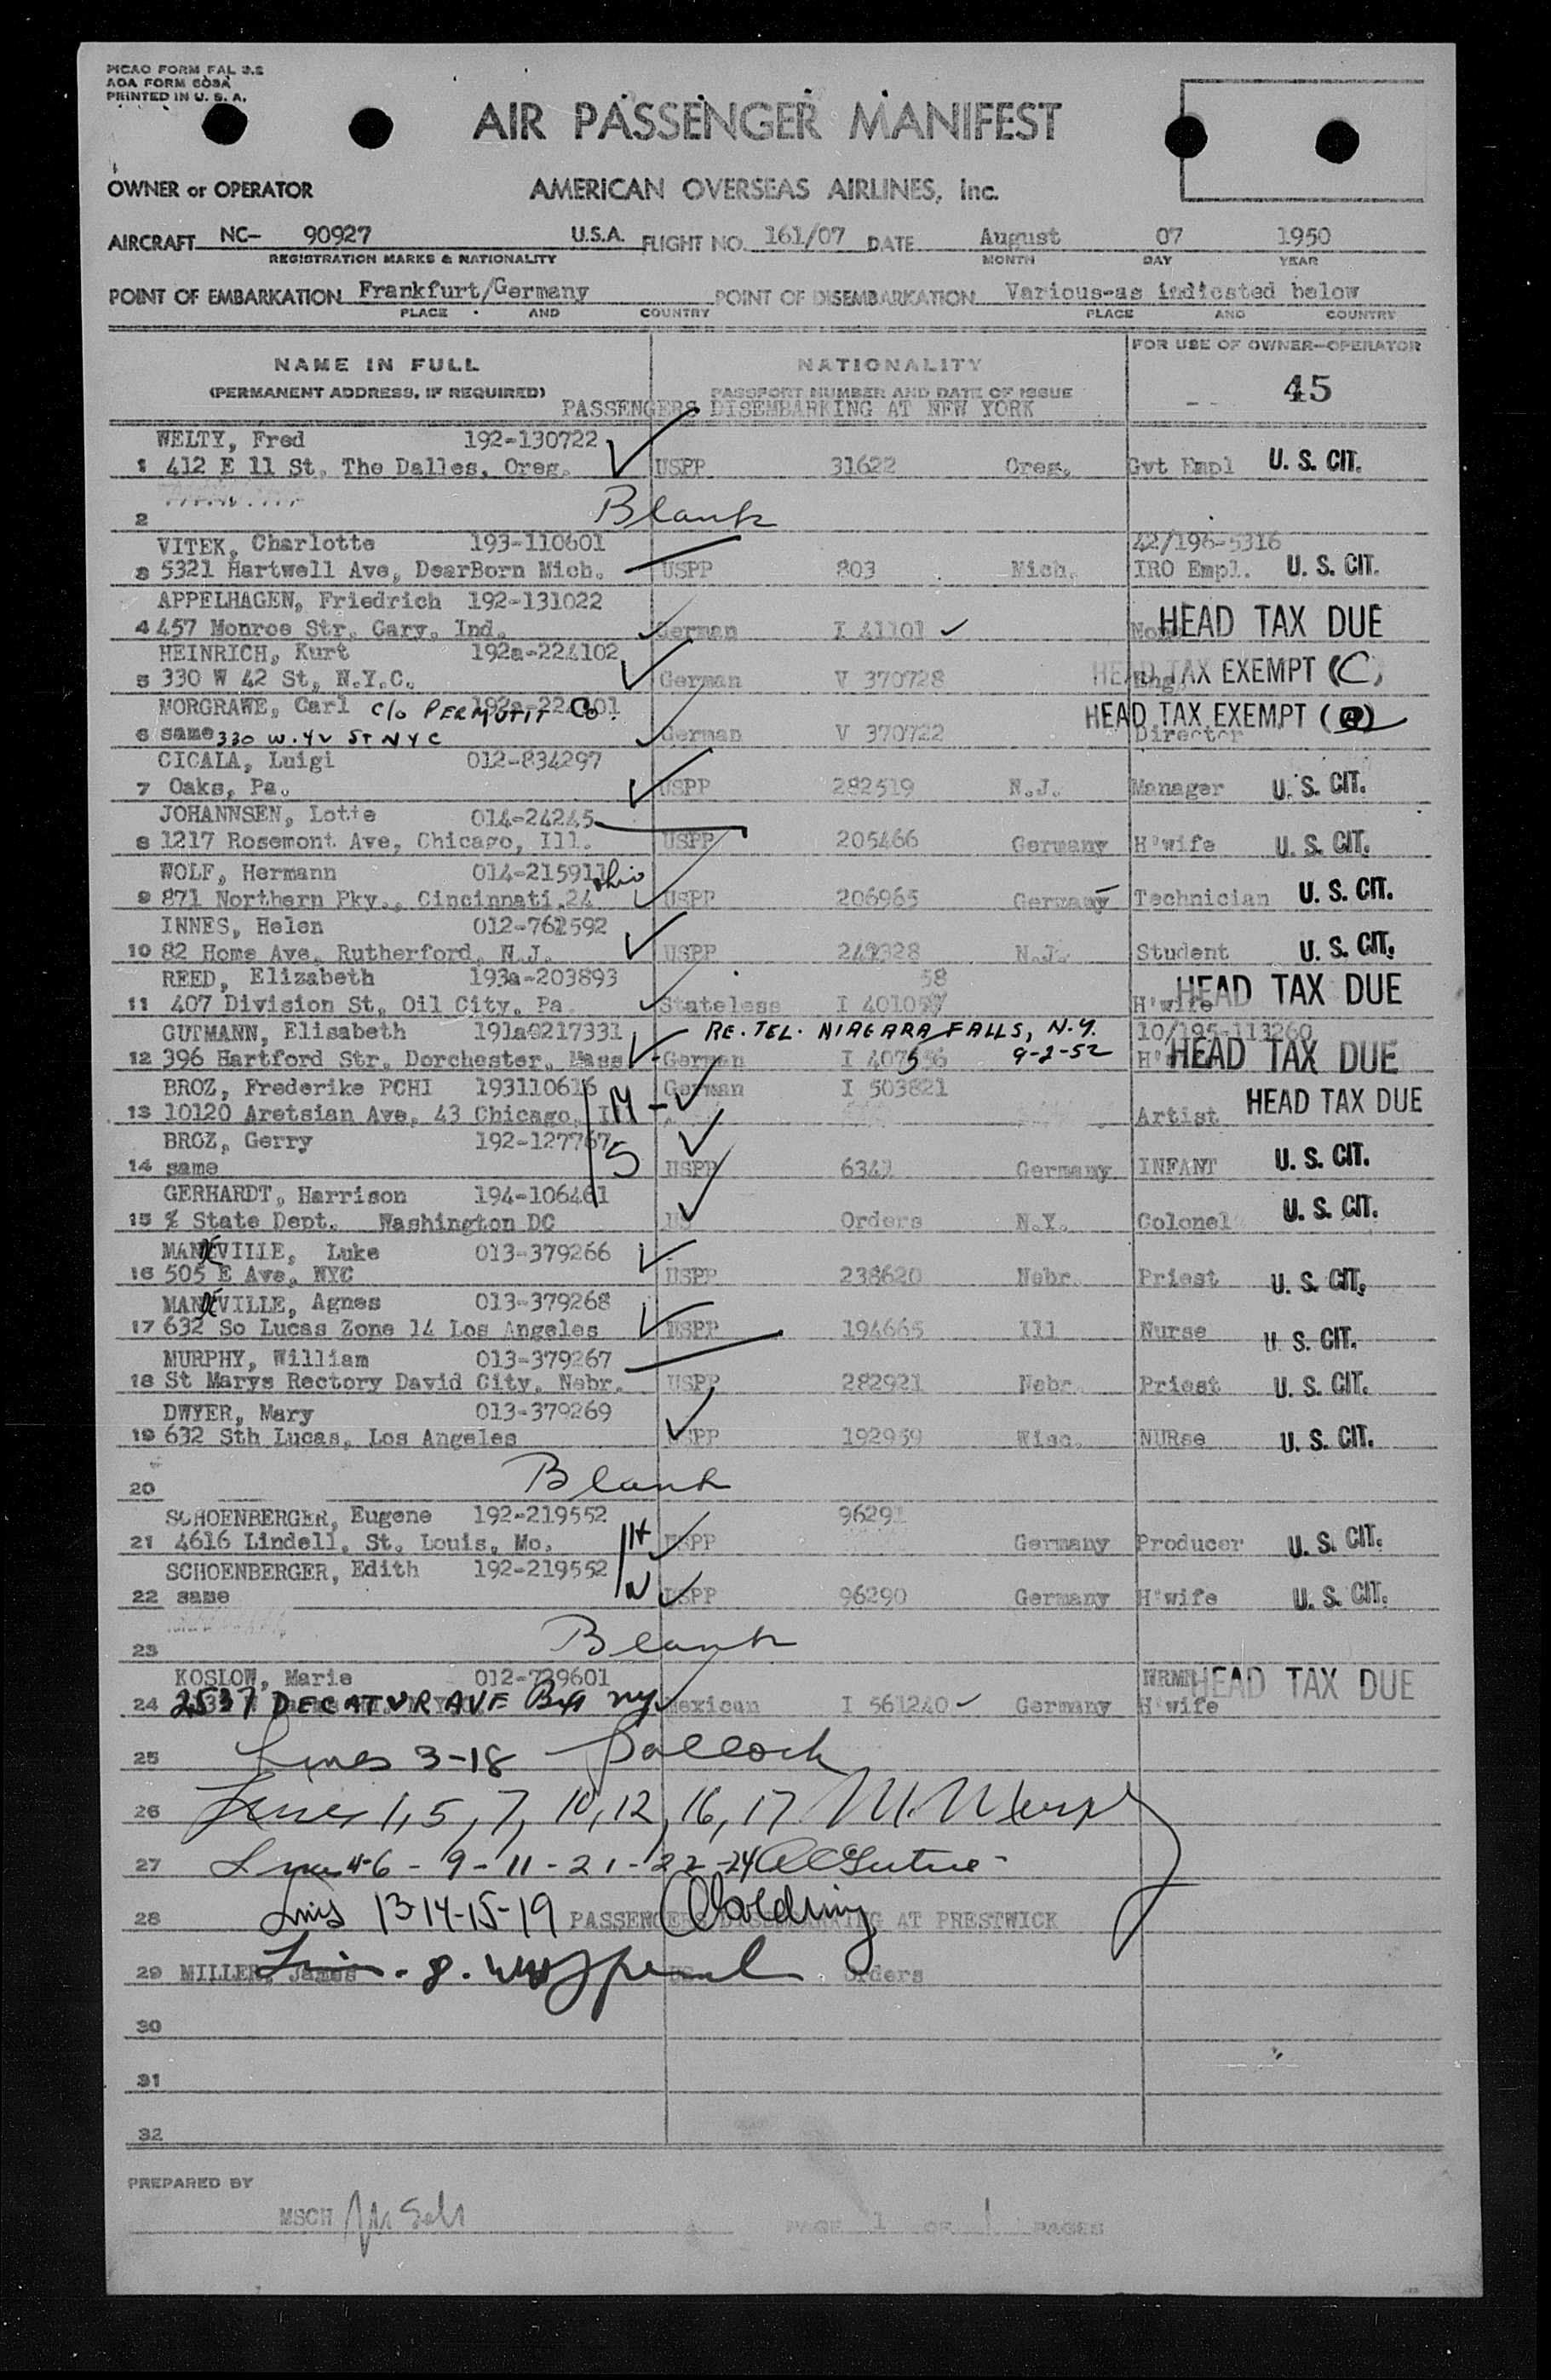 PICAO FORM FAL 3.2
AOA FORM 608A
PRINTED IN U. S. A.
AIR PASSENGER MANIFEST
OWNER or OPERATOR AMERICAN OVERSEAS AIRLINES, Inc.
AIRCRAFT NC- 90927 U.S.A. FLIGHT NO. 161/07 DATE August 07 1950
REGISTRATION MARKS & NATIONALITY MONTH DAY YEAR
POINT OF EMBARKATION Frankfurt/Germany POINT OF DISEMBARKATION Various-as indicated below
PLACE AND COUNTRY PLACE AND COUNTRY
NAME IN FULL NATIONALITY FOR USE OF OWNER-OPERATOR
(PERMANENT ADDRESS, IF REQUIRED) PASSPORT NUMBER AND DATE OF ISSUE 45
PASSENGERS DISEMBARKING AT NEW YORK
WELTY, Fred 192-130722
1 412 E 11 St. The Dalles, Oreg. USPP 31622 Oreg. Gvt Empl U. S. CIT.
2 Blank
VITEK, Charlotte 193-110601 42/196-5316
3 5321 Hartwell Ave, DearBorn Mich. USPP 803 Mich. IRO Empl. U. S. CIT.
APPELHAGEN, Friedrich 192-131022
4 457 Monroe Str. Gary, Ind. German I 41101 HEAD TAX DUE
HEINRICH, Kurt 192a-224102
5 330 W 42 St, N.Y.C. German V 370728 Eng. HEAD TAX EXEMPT (C)
MORGRAWE, Carl c/o PERMUTIT Co.
6 same 330 W. 42 ST NYC German V 370722 Director HEAD TAX EXEMPT
CICALA, Luigi 012-834297
7 Oaks, Pa. USPP 282519 N.J. Manager U. S. CIT.
JOHANNSEN, Lotte 014-24245
8 1217 Rosemont Ave, Chicago, Ill. USPP 205466 Germany H'wife U. S. CIT.
WOLF, Hermann 014-21591 Ohio
9 871 Northern Pky., Cincinnati,24 USPP 206965 Germany Technician U. S. CIT.
INNES, Helen 012-762592
10 82 Home Ave, Rutherford, N.J. USPP N.J. Student U. S. CIT.
REED, Elizabeth 193a-203893 58
11 407 Division St, Oil City, Pa Stateless H'wife HEAD TAX DUE
GUTMANN, Elisabeth 191a0217331 RE. TEL. NIAGARA FALLS, N.Y. 10/195-113260
12 396 Hartford Str. Dorchester, Mass German 9-2-52 HEAD TAX DUE
BROZ, Frederike PCHI 193110616 German I 503821
13 10120 Aretsian Ave, 43 Chicago, M Artist HEAD TAX DUE
BROZ, Gerry 192-127767
14 same S USPP 6341 Germany INFANT U. S. CIT.
GERHARDT, Harrison 194-106461
15 % State Dept. Washington DC US Orders N.Y. Colonel U. S. CIT.
MANDEVILLE, Luke 013-379266
16 505 E Ave, NYC USPP 238620 Nebr. Priest U. S. CIT.
MANDEVILLE, Agnes 013-379268
17 632 So Lucas Zone 14 Los Angeles USPP 194665 Ill Nurse U. S. CIT.
MURPHY, William 013-379267
18 St Marys Rectory David City, Nebr. USPP 282921 Nebr. Priest U. S. CIT.
DWYER, Mary 013-379269
19 632 Sth Lucas, Los Angeles USPP 192959 Wisc. NURse U. S. CIT.
20 Blank
SCHOENBERGER, Eugene 192-219552 96291
21 4616 Lindell, St. Louis, Mo. H USPP Germany Producer U. S. CIT.
SCHOENBERGER, Edith 192-219552
22 same W USPP 96290 Germany H'wife U. S. CIT.
23 Blank
KOSLOW, Marie 012-739601
24 2537 DECATUR AVE Bx NY Mexican I 561240 Germany H'wife HEAD TAX DUE
25 Lines 3-18 Pollock
26 Lines 1, 5, 7, 10, 12, 16, 17 M. Murphy
27 Lines 4-6-9-11-21-22-24
28 Lines 13-14-15-19 Golding PASSENGERS DISEMBARKING AT PRESTWICK
29 MILLER, James US Orders
30
31
32
PREPARED BY
MSCH
PAGE 1 OF 1 PAGES